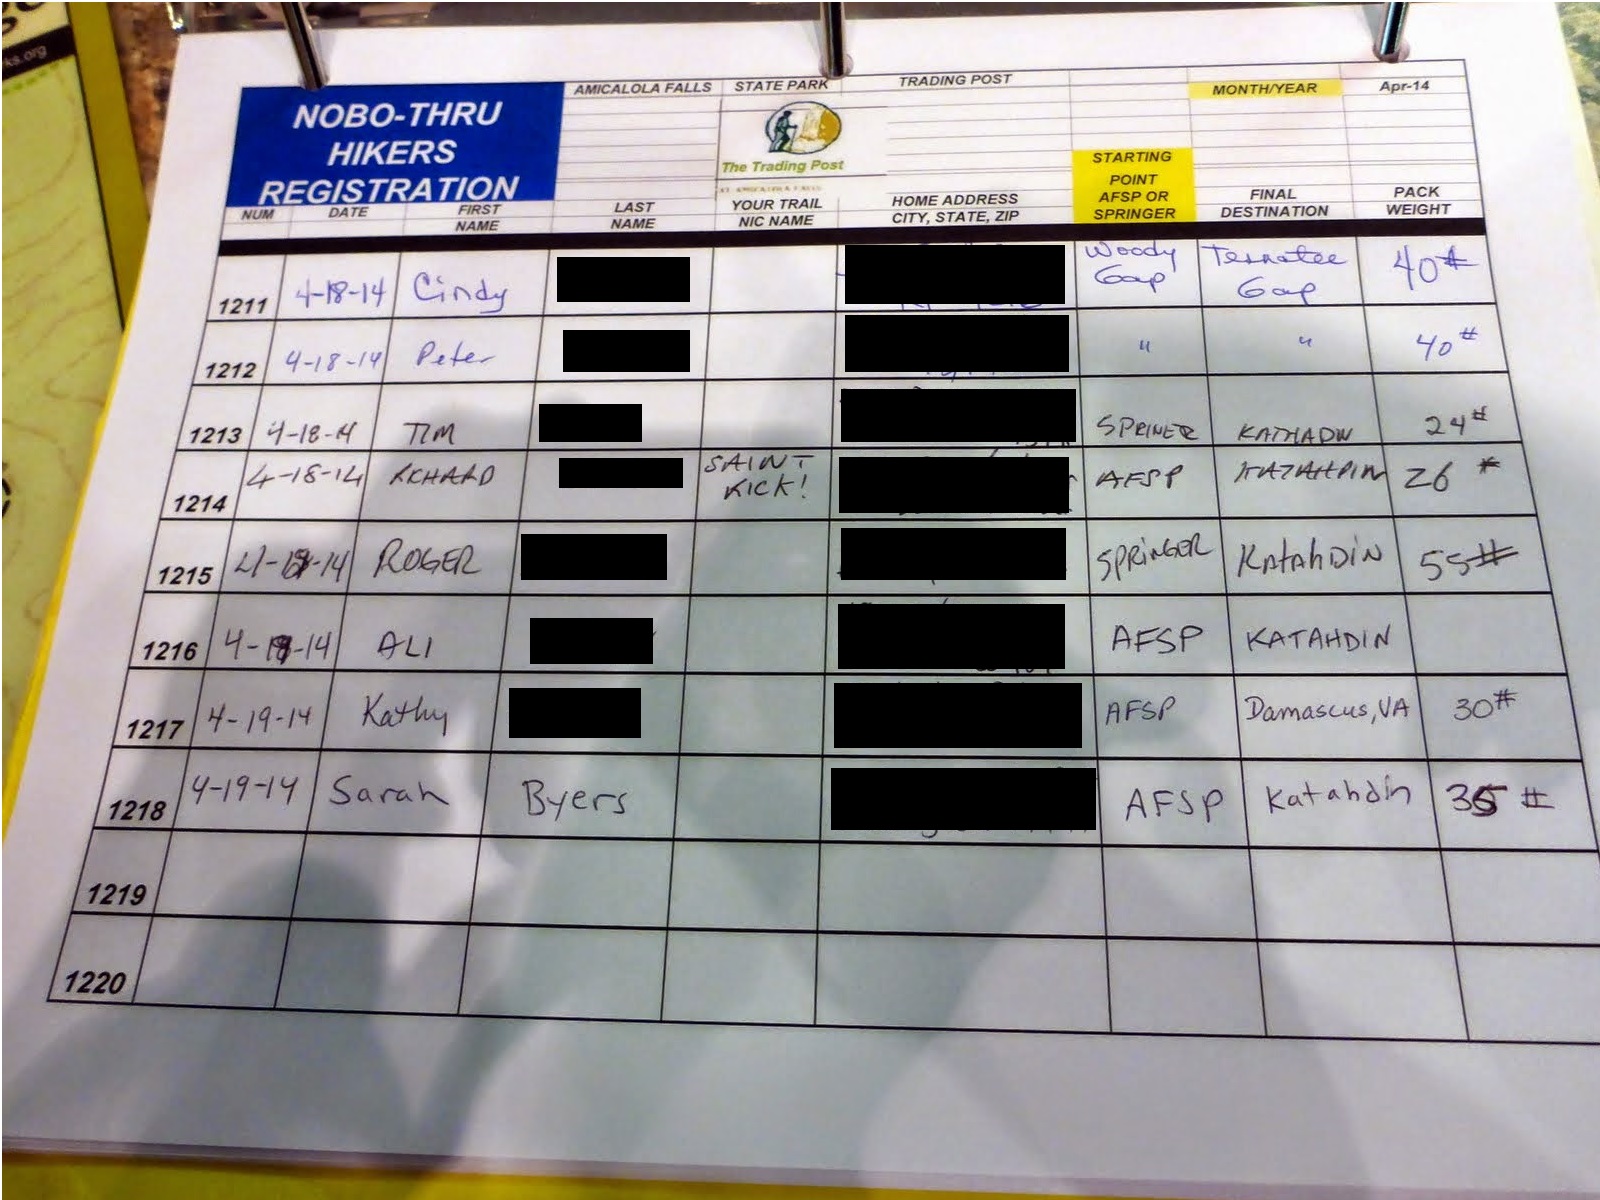 ks.org
NOBO-THRU
HIKERS
REGISTRATION
AMICALOLA FALLS STATE PARK TRADING POST MONTH/YEAR Apr-14
The Trading Post
AT AMICALOLA FALLS
NUM DATE FIRST NAME LAST NAME YOUR TRAIL NIC NAME HOME ADDRESS CITY, STATE, ZIP STARTING POINT AFSP OR SPRINGER FINAL DESTINATION PACK WEIGHT
1211 4-18-14 Cindy Woody Gap Gap 40#
1212 4-18-14 Peter " " 40#
1213 4-18-14 TIM SPRINER 24#
1214 4-18-14 SAINT KICK! AFSP 26 #
1215 4-18-14 ROGER SPRINGER KATAHDIN 55#
1216 4-18-14 ALI AFSP KATAHDIN
1217 4-19-14 Kathy AFSP Damascus, VA 30#
1218 4-19-14 Sarah Byers AFSP Katahdin 35 #
1219
1220